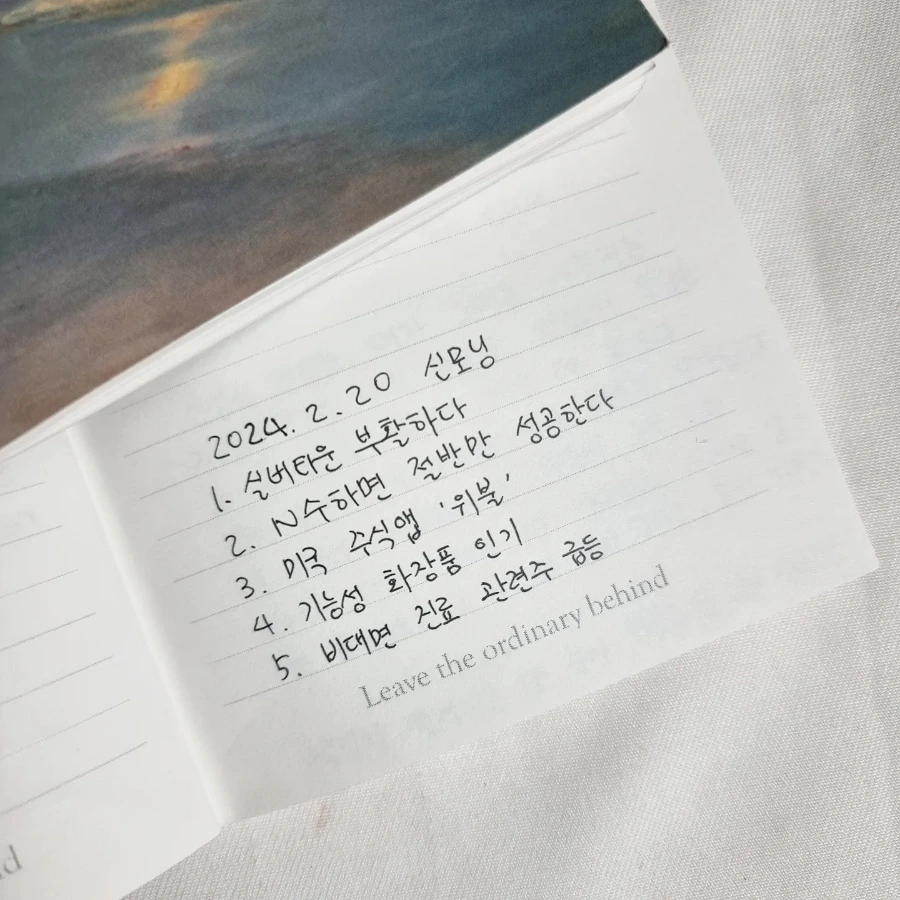 2024. 2. 20 신모닝
1. 실버타운 부활하다
2. N수하면 절반만 성공한다
3. 미국 주식앱 '위불'
4. 기능성 화장품 인기
5. 비대면 진료 관련주 급등
Leave the ordinary behind